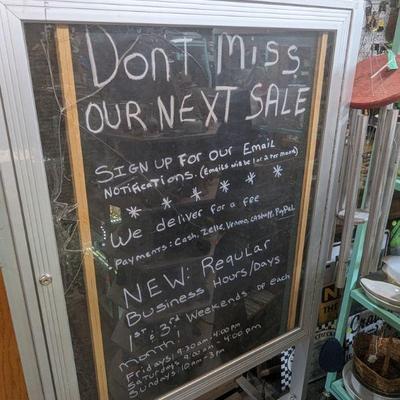 Don't Miss
OUR NEXT SALE
SIGN UP FOR OUR EMAIL
NOTIFICATIONS. (Emails will be 1 or 2 Per month)
We deliver for a fee
Payments: Cash, Zelle, Venmo, Cashapp, PayPal
NEW: Regular
Business Hours/Days
1st & 3rd Weekends of each
month!
Fridays: 9:30am-4:00pm
Saturdays: 9:00am-4:00pm
Sundays: 10am-3pm
THE